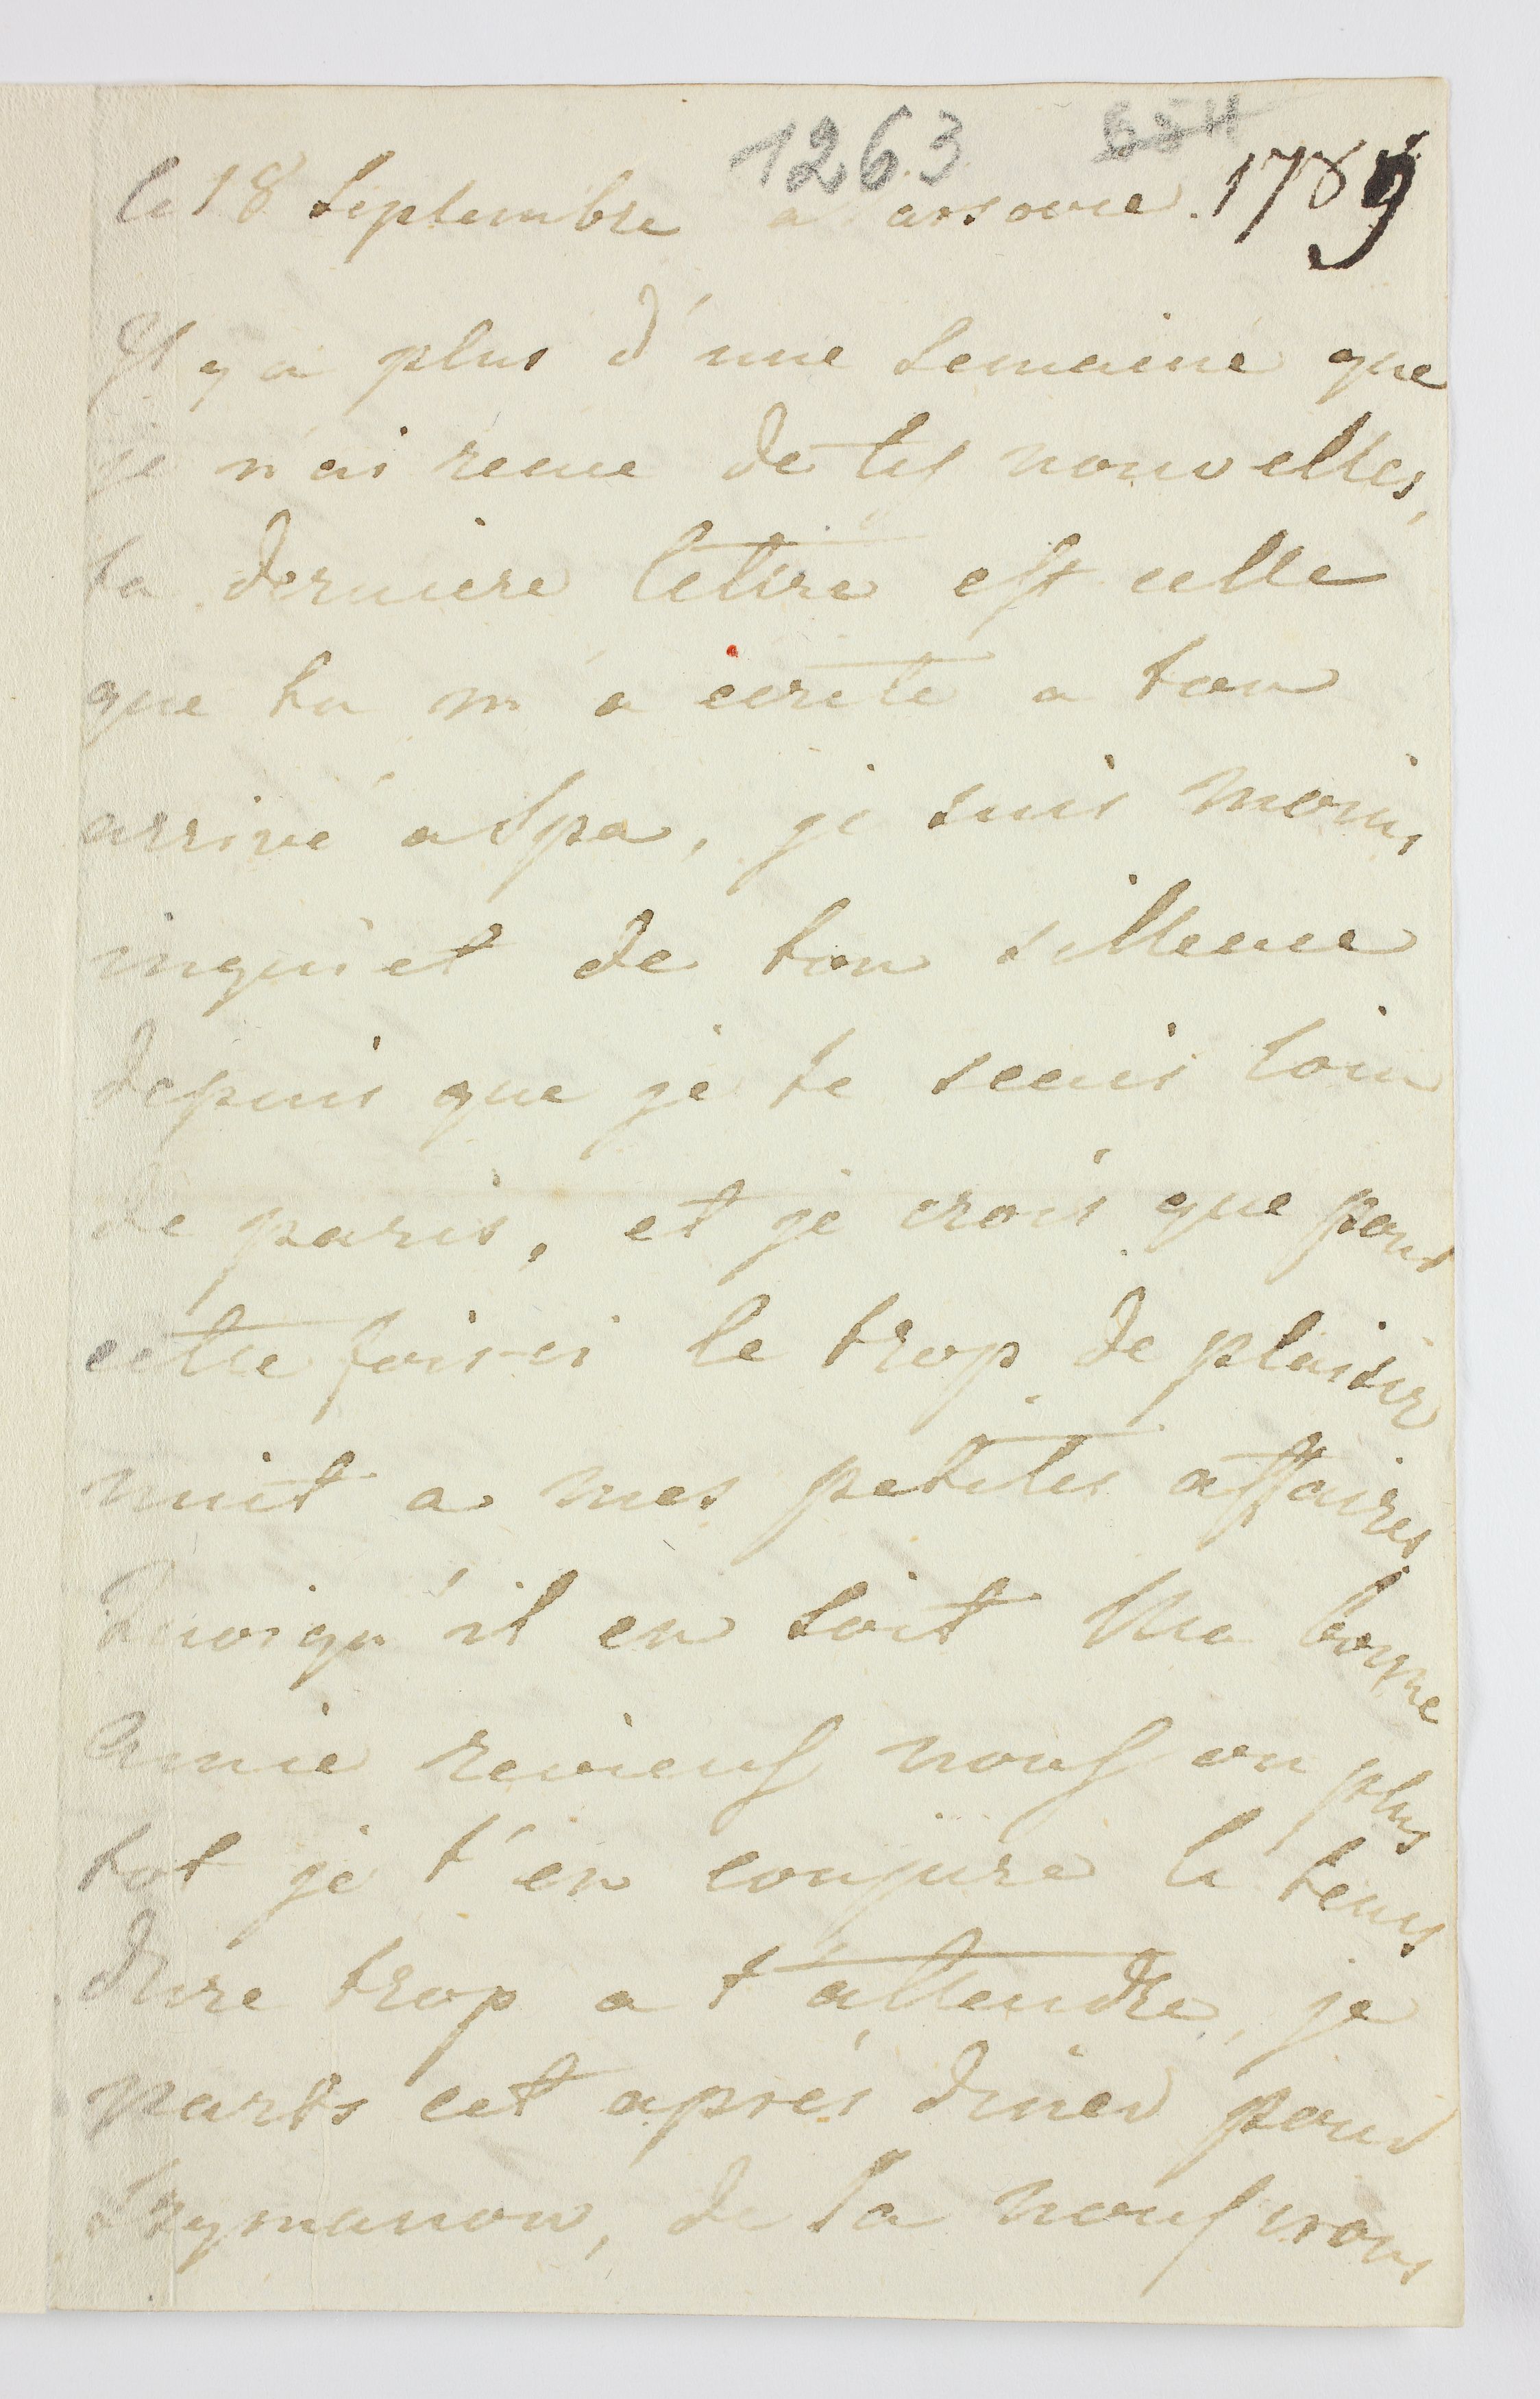 1263
le 18 Septembre a arsovie. 1789
Il y a plus d'une semaine que
je n'ai recue de tes nouvelles,
ta derniere lettre est celle
que tu m'a ecrite a ton
arrivé a Spa, je suis moins
inquiet de ton sillence
depuis que je te scais loin
de paris, et je crois que pour
cette fois-ci le trop de plaisir
nuit a mes petites affaires
Quoiqu'il en soit Ma bonne
Amie reviens nous au plus
tot je t'en conjure le tems
dure trop a t'attendre, je
parts cet aprés diner pour
Szymanow, de la nous irons